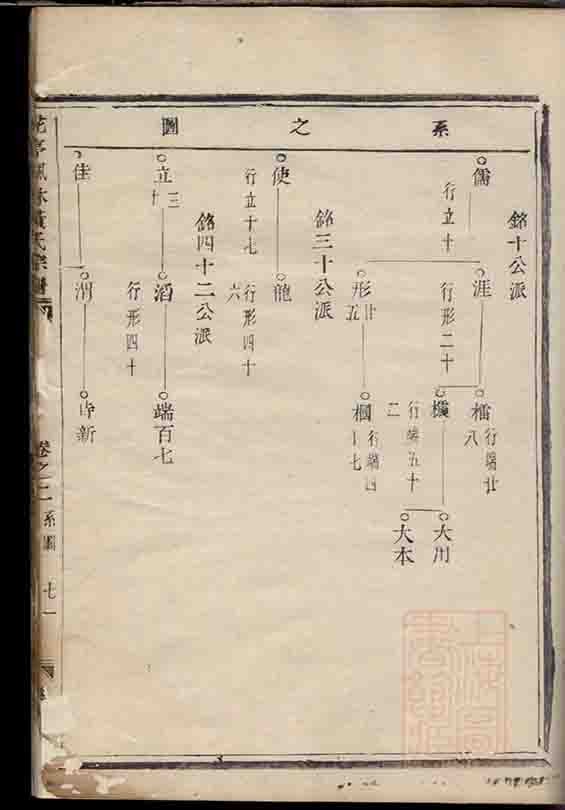 系之圖
銘十公派
儒
行立十
涯
行形二十
檔
行端廿八
欓
行端五十二
大川
大本
形廿五
棝
行端四十七
銘三十公派
使
行立十七
龍
行形四十六
銘四十二公派
立三十
滔
行形四十
端百七
佳
時新
卷之二
系圖
七一